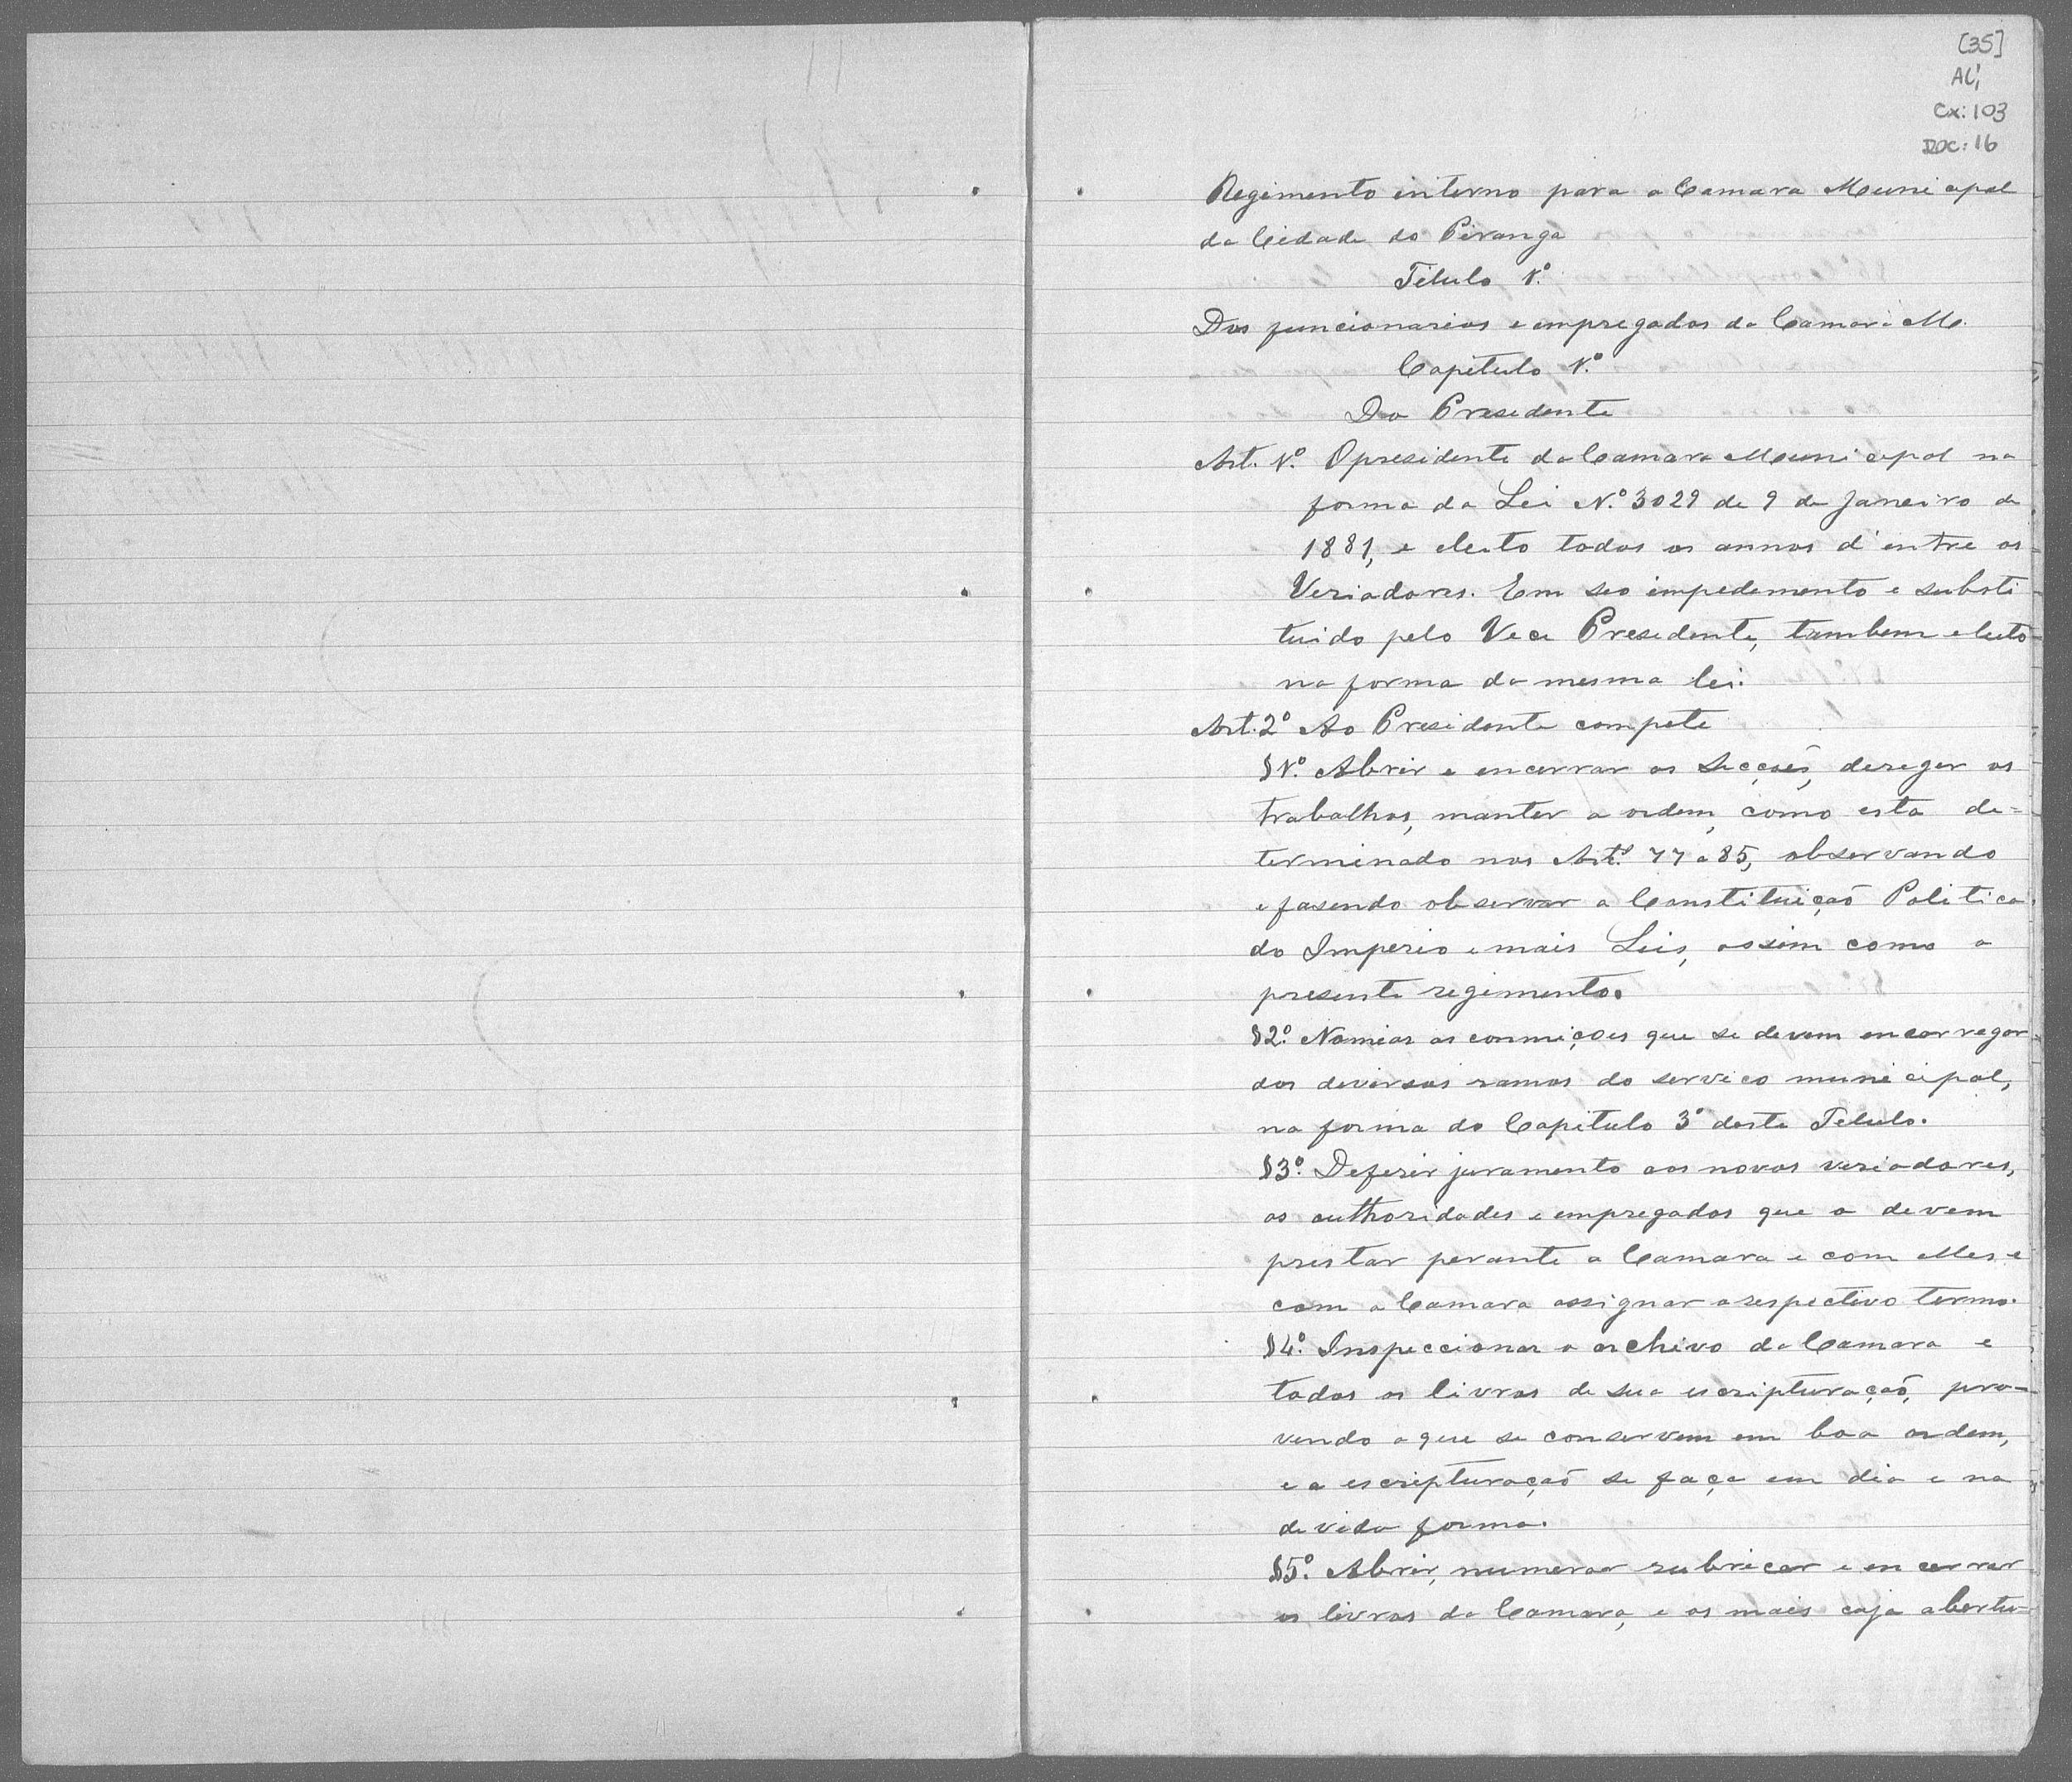 [35]
AC,
Cx: 103
DOC: 16
Regimento interno para a Camara Municipal
da Cidade do Piranga
Titulo 1.º
Dos funcionarios e empregados da Camara M.
Capitulo 1.º
Do Presidente
Art. 1.º O presidente da Camara Municipal na
forma da Lei N.º 3029 de 9 de Janeiro de
1881, e eleito todos os annos d'entre os
Veriadores. Em seo impedimento e substi
tuido pelo Vice Presidente, tambem eleito
na forma da mesma lei.
Art. 2º Ao Presidente compete
§ 1.º Abrir e encerrar as Secções, deriger os
trabalhos, manter a ordem, como esta de=
terminado nos Art.s 77 a 85, observando
e fasendo observar a Constituiçaõ Politica
do Imperio e mais Leis, assim como o
presente regimento.
§ 2.º Nomear as conmições que se devem encarregar
dos diversos ramos do serviço municipal,
na forma do Capitulo 3º deste Titulo.
§ 3.º Deferir juramento aos novos veriadores,
as authoridades e empregados que o devem
prestar perante a Camara e com elles e
com a Camara assignar o respectivo termo.
§ 4.º Inspeccionar o archivo da Camara e
todos os livros de sua escripturaçaõ, pro-
vendo a que se conservem em boa ordem,
e a escripturaçaõ se faça em dia e na
devida forma.
§ 5.º Abrir, numerar rubricar e encerrar
os livros da Camara, e os mais cuja abertu-